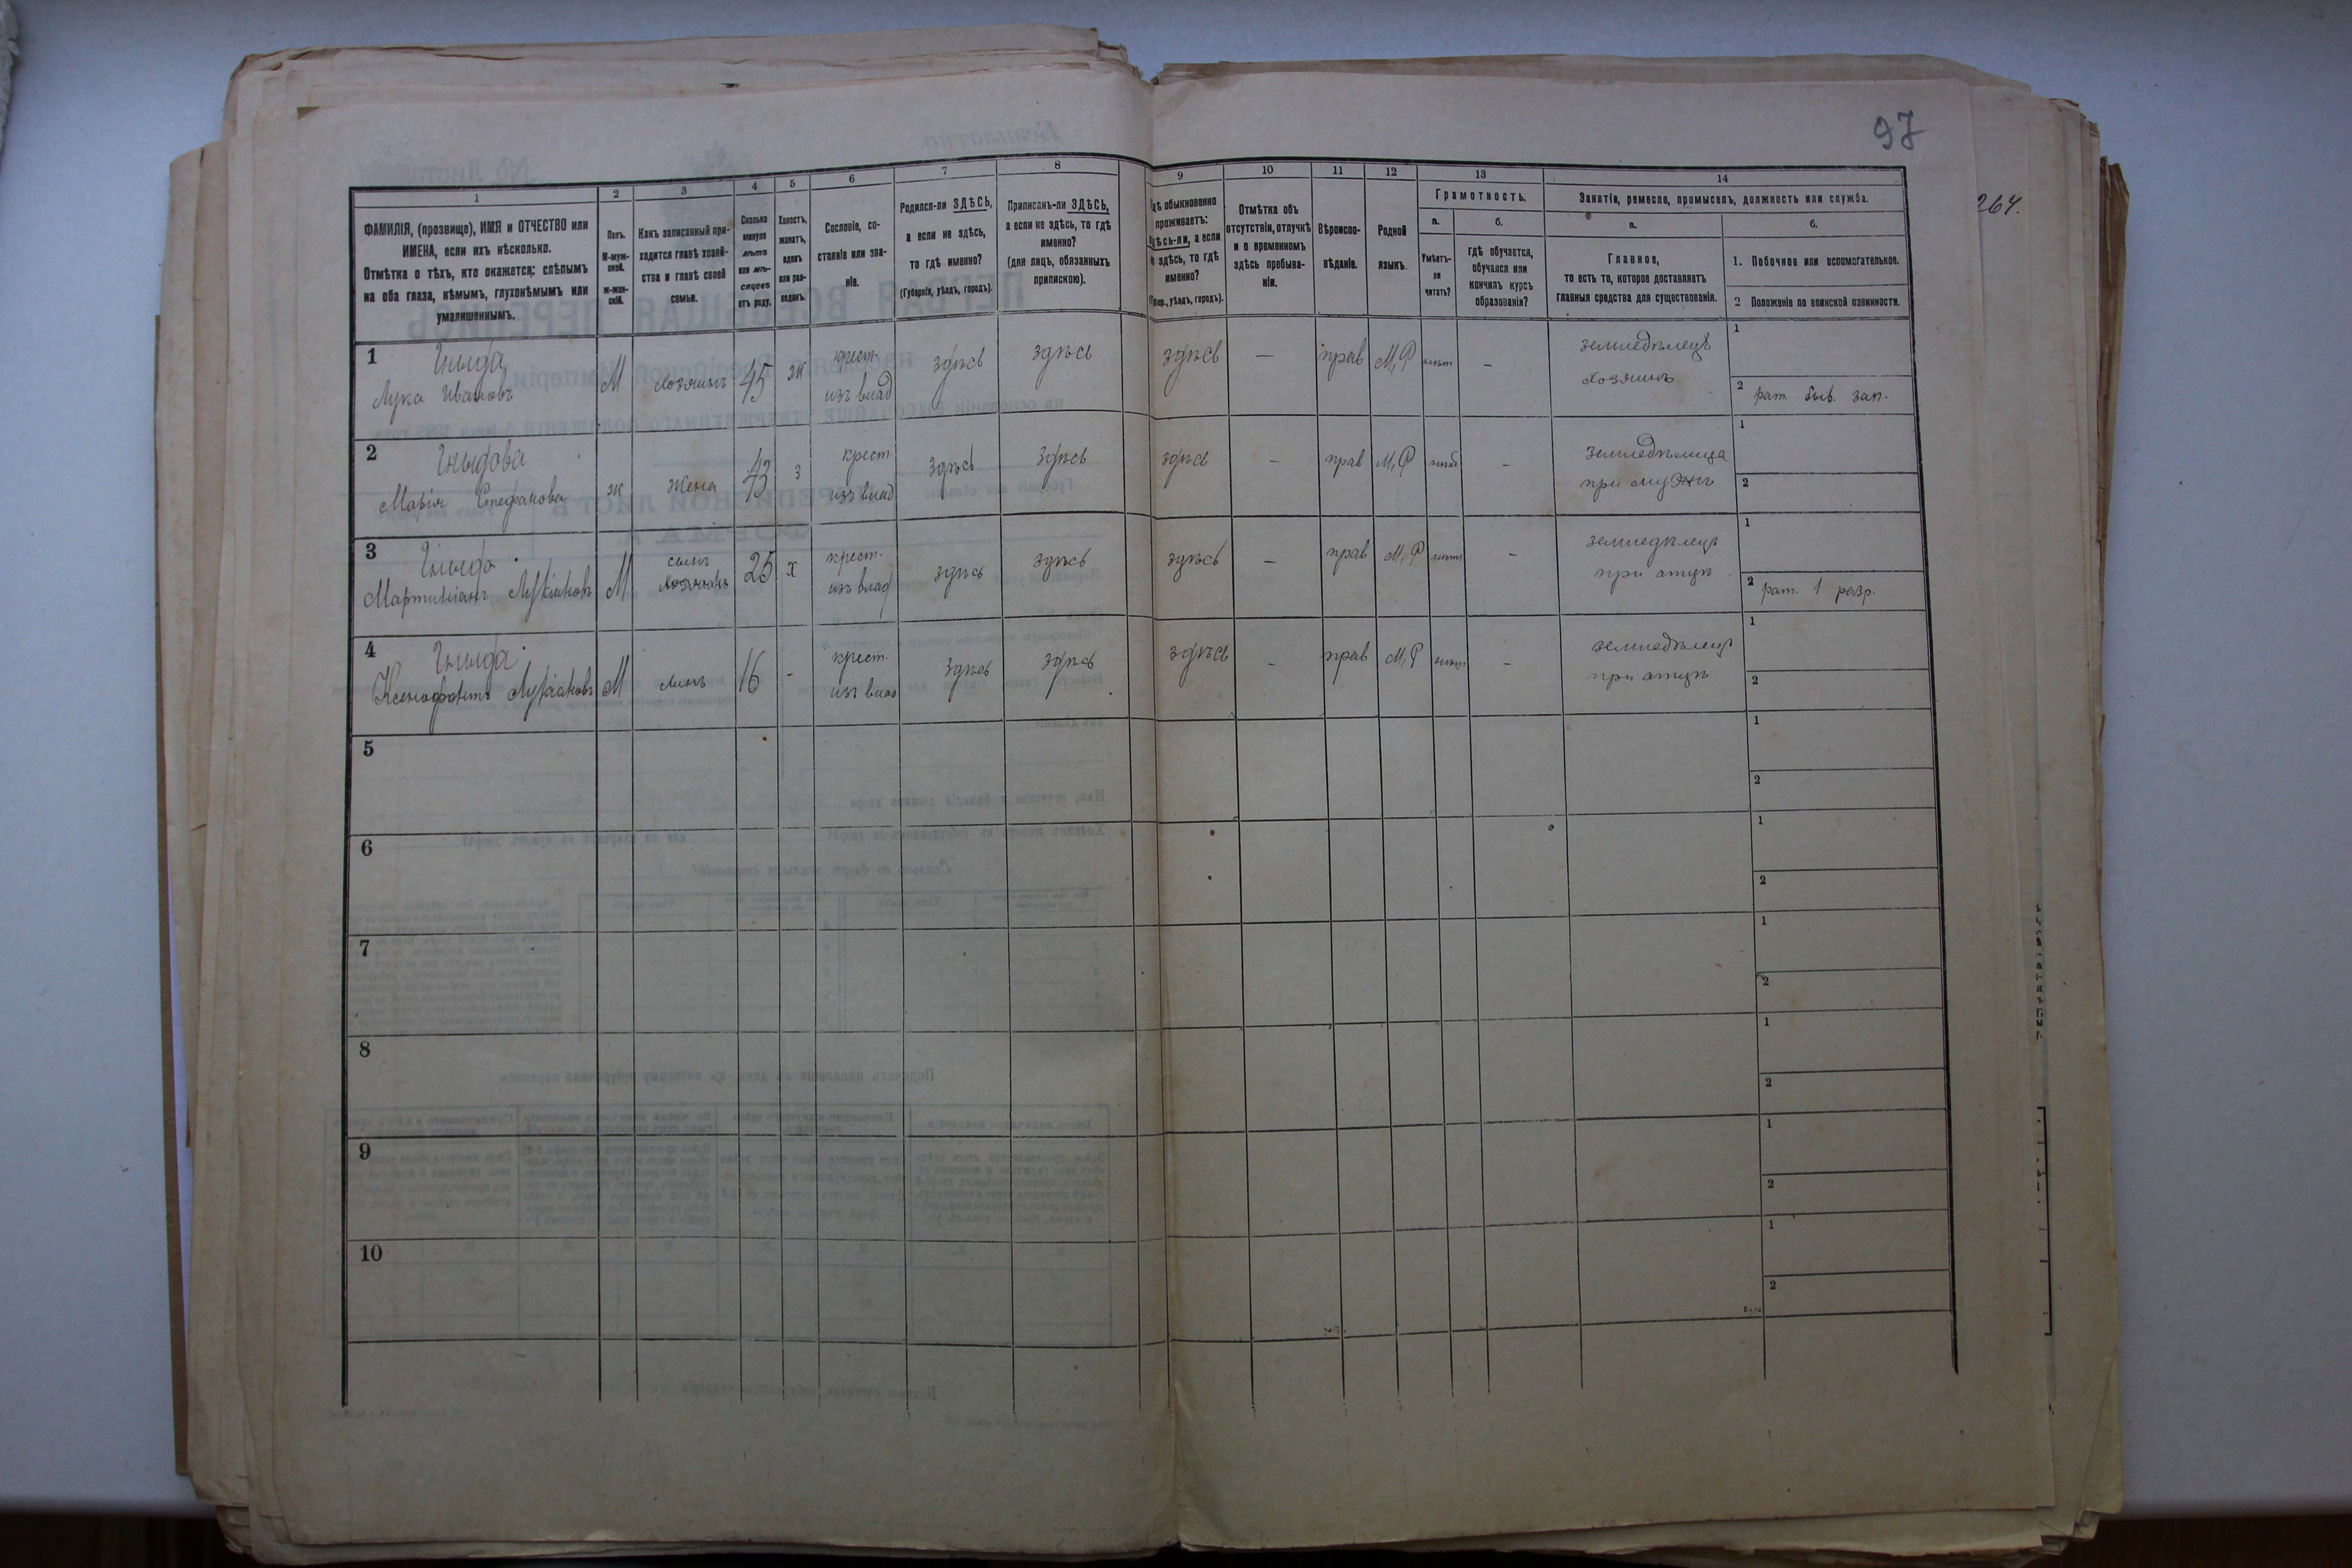 97
264.
1
2
3
4
5
6
7
8
9
10
11
12
13
14
ФАМИЛІЯ, (прозвище), ИМЯ и ОТЧЕСТВО или
ИМЕНА, если ихъ нѣсколько.
Отмѣтка о тѣхъ, кто окажется: слѣпымъ
на оба глаза, нѣмымъ, глухонѣмымъ или
умалишеннымъ.
Полъ.
М-муж-
ской.
ж-жен-
скій.
Какъ записанный при-
ходится главѣ хозяй-
ства и главѣ своей
семьи.
Сколько
минуло
лѣтъ
или мѣ-
сяцевъ
отъ роду.
Холостъ,
женатъ,
вдовъ
или раз-
веденъ.
Сословіе, со-
стояніе или зва-
ніе.
Родился-ли ЗДѢСЬ,
а если не здѣсь,
то гдѣ именно?
(Губернія, уѣздъ, городъ).
Приписанъ-ли ЗДѢСЬ,
а если не здѣсь, то гдѣ
именно?
(для лицъ, обязанныхъ
припискою).
обыкновенно
проживаетъ:
а если
здѣсь, то гдѣ
именно?
уѣздъ, городъ).
Отмѣтка объ
отсутствіи, отлучкѣ
и о временномъ
здѣсь пребыва-
ніи.
Вѣроиспо-
вѣданіе.
Родной
языкъ.
Грамотность.
а.
б.
Умѣетъ-
ли
читать?
Гдѣ обучается,
обучался или
кончилъ курсъ
образованія?
Занятіе, ремесло, промыселъ, должность или служба.
а.
б.
Главное,
то есть то, которое доставляетъ
главныя средства для существованія.
1. Побочное или вспомогательное.
2 Положеніе по воинской повинности.
1
Гныда
Лука Ивановъ
М
хозяинъ
45
ж
крест.
изъ влад
здѣсь
здѣсь
здѣсь
—
прав
М,Р
нѣт
—
земледѣлецъ
хозяинъ
1
2 рат. быв. зап.
2
Гныдова
Марія Стефанова
ж
жена
43
з
крест
изъ влад
здѣсь
здѣсь
здѣсь
—
прав
М,Р
—
земледѣлица
при мужѣ
1
2
3
Гныда
Мартиніанъ Лукіановъ
М
сынъ
хозяина
25
х
крест.
изъ влад
здѣсь
здѣсь
здѣсь
—
прав
М,Р
нѣт
—
земледѣлецъ
при отцѣ
1
2 рат. 1 разр.
4
Гныда
Ксенофонтъ Лукіановъ
М
16
-
крест.
изъ влад
здѣсь
здѣсь
здѣсь
-
прав
М,Р
нѣт
—
земледѣлецъ
при отцѣ
1
2
5
1
2
6
1
2
7
1
2
8
1
2
9
1
2
10
1
2